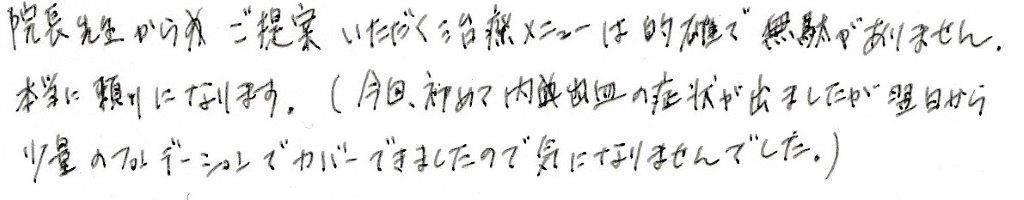 院長先生からの ご提案 いただく治療メニューは的確で無駄がありません。
本当に頼りになります。(今回、初めて内出血の症状が出ましたが翌日から
少量のファンデーションでカバーできましたので気になりませんでした。)